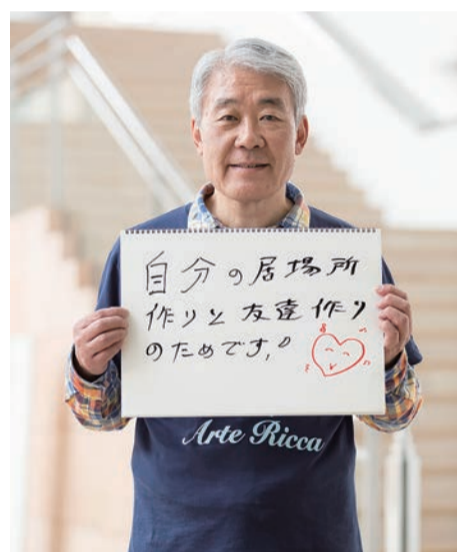 自分の居場所
作りと友達作り
のためです。
Arte Ricca